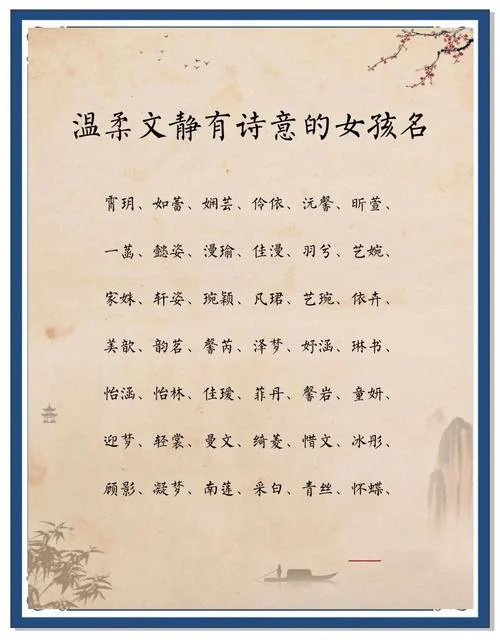 温柔文静有诗意的女孩名
霄玥、如蕾、娴芸、伶依、沅馨、昕萱、
一菡、懿姿、漫瑜、佳漫、羽兮、艺婉、
家姝、轩姿、琬颖、凡珺、艺琬、依卉、
美歆、韵茗、馨芮、泽梦、妤涵、琳书、
怡涵、怡林、佳瑷、菲丹、馨岩、童妍、
迎梦、轻裳、曼文、绮菱、惜文、冰彤、
顾影、凝梦、南莲、采白、青丝、怀蝶、